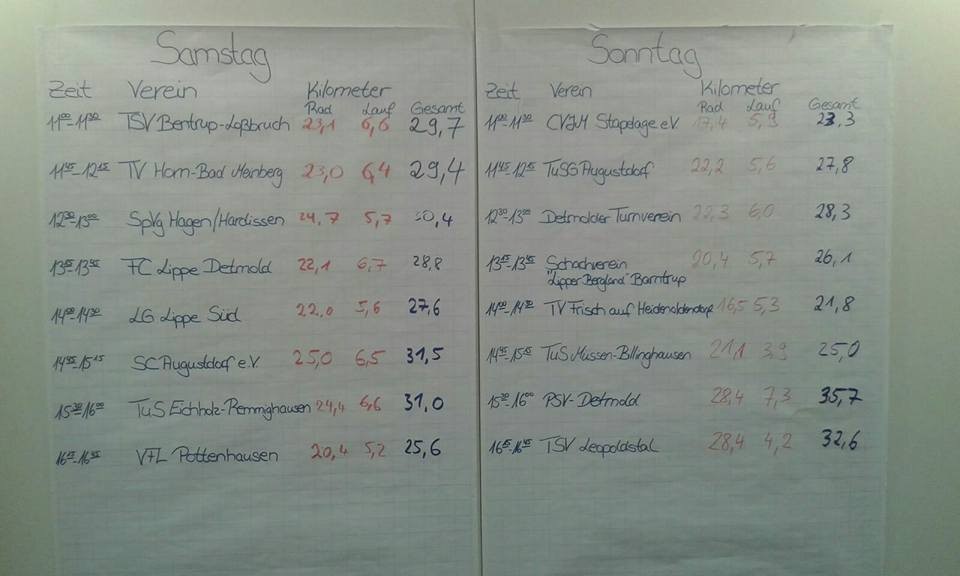 Samstag
Zeit Verein Kilometer
Rad Lauf Gesamt
11⁰⁰-11³⁰ TSV Bentrup-Loßbruch 23,1 6,6 29,7
11⁴⁵-12¹⁵ TV Horn-Bad Meinberg 23,0 6,4 29,4
12³⁰-13⁰⁰ SpVg Hagen/Hardissen 24,7 5,7 30,4
13¹⁵-13⁴⁵ FC Lippe Detmold 22,1 6,7 28,8
14⁰⁰-14³⁰ LG Lippe Süd 22,0 5,6 27,6
14⁴⁵-15¹⁵ SC Augustdorf e.V. 25,0 6,5 31,5
15³⁰-16⁰⁰ TuS Eichholz-Remmighausen 24,4 6,6 31,0
16¹⁵-16⁴⁵ VfL Pottenhausen 20,4 5,2 25,6
Sonntag
Zeit Verein Kilometer
Rad Lauf Gesamt
11⁰⁰-11³⁰ CVJM Stapelage e.V. 17,4 5,9 23,3
11⁴⁵-12¹⁵ TuSG Augustdorf 22,2 5,6 27,8
12³⁰-13⁰⁰ Detmolder Turnverein 22,3 6,0 28,3
13¹⁵-13⁴⁵ Schachverein 20,4 5,7 26,1
"Lipper Bergland" Barntrup
14⁰⁰-14³⁰ TV Frisch auf Heidenoldendorf 16,5 5,3 21,8
14⁴⁵-15¹⁵ TuS Müssen-Billinghausen 21,1 3,9 25,0
15³⁰-16⁰⁰ PSV-Detmold 28,4 7,3 35,7
16¹⁵-16⁴⁵ TSV Leopoldstal 28,4 4,2 32,6